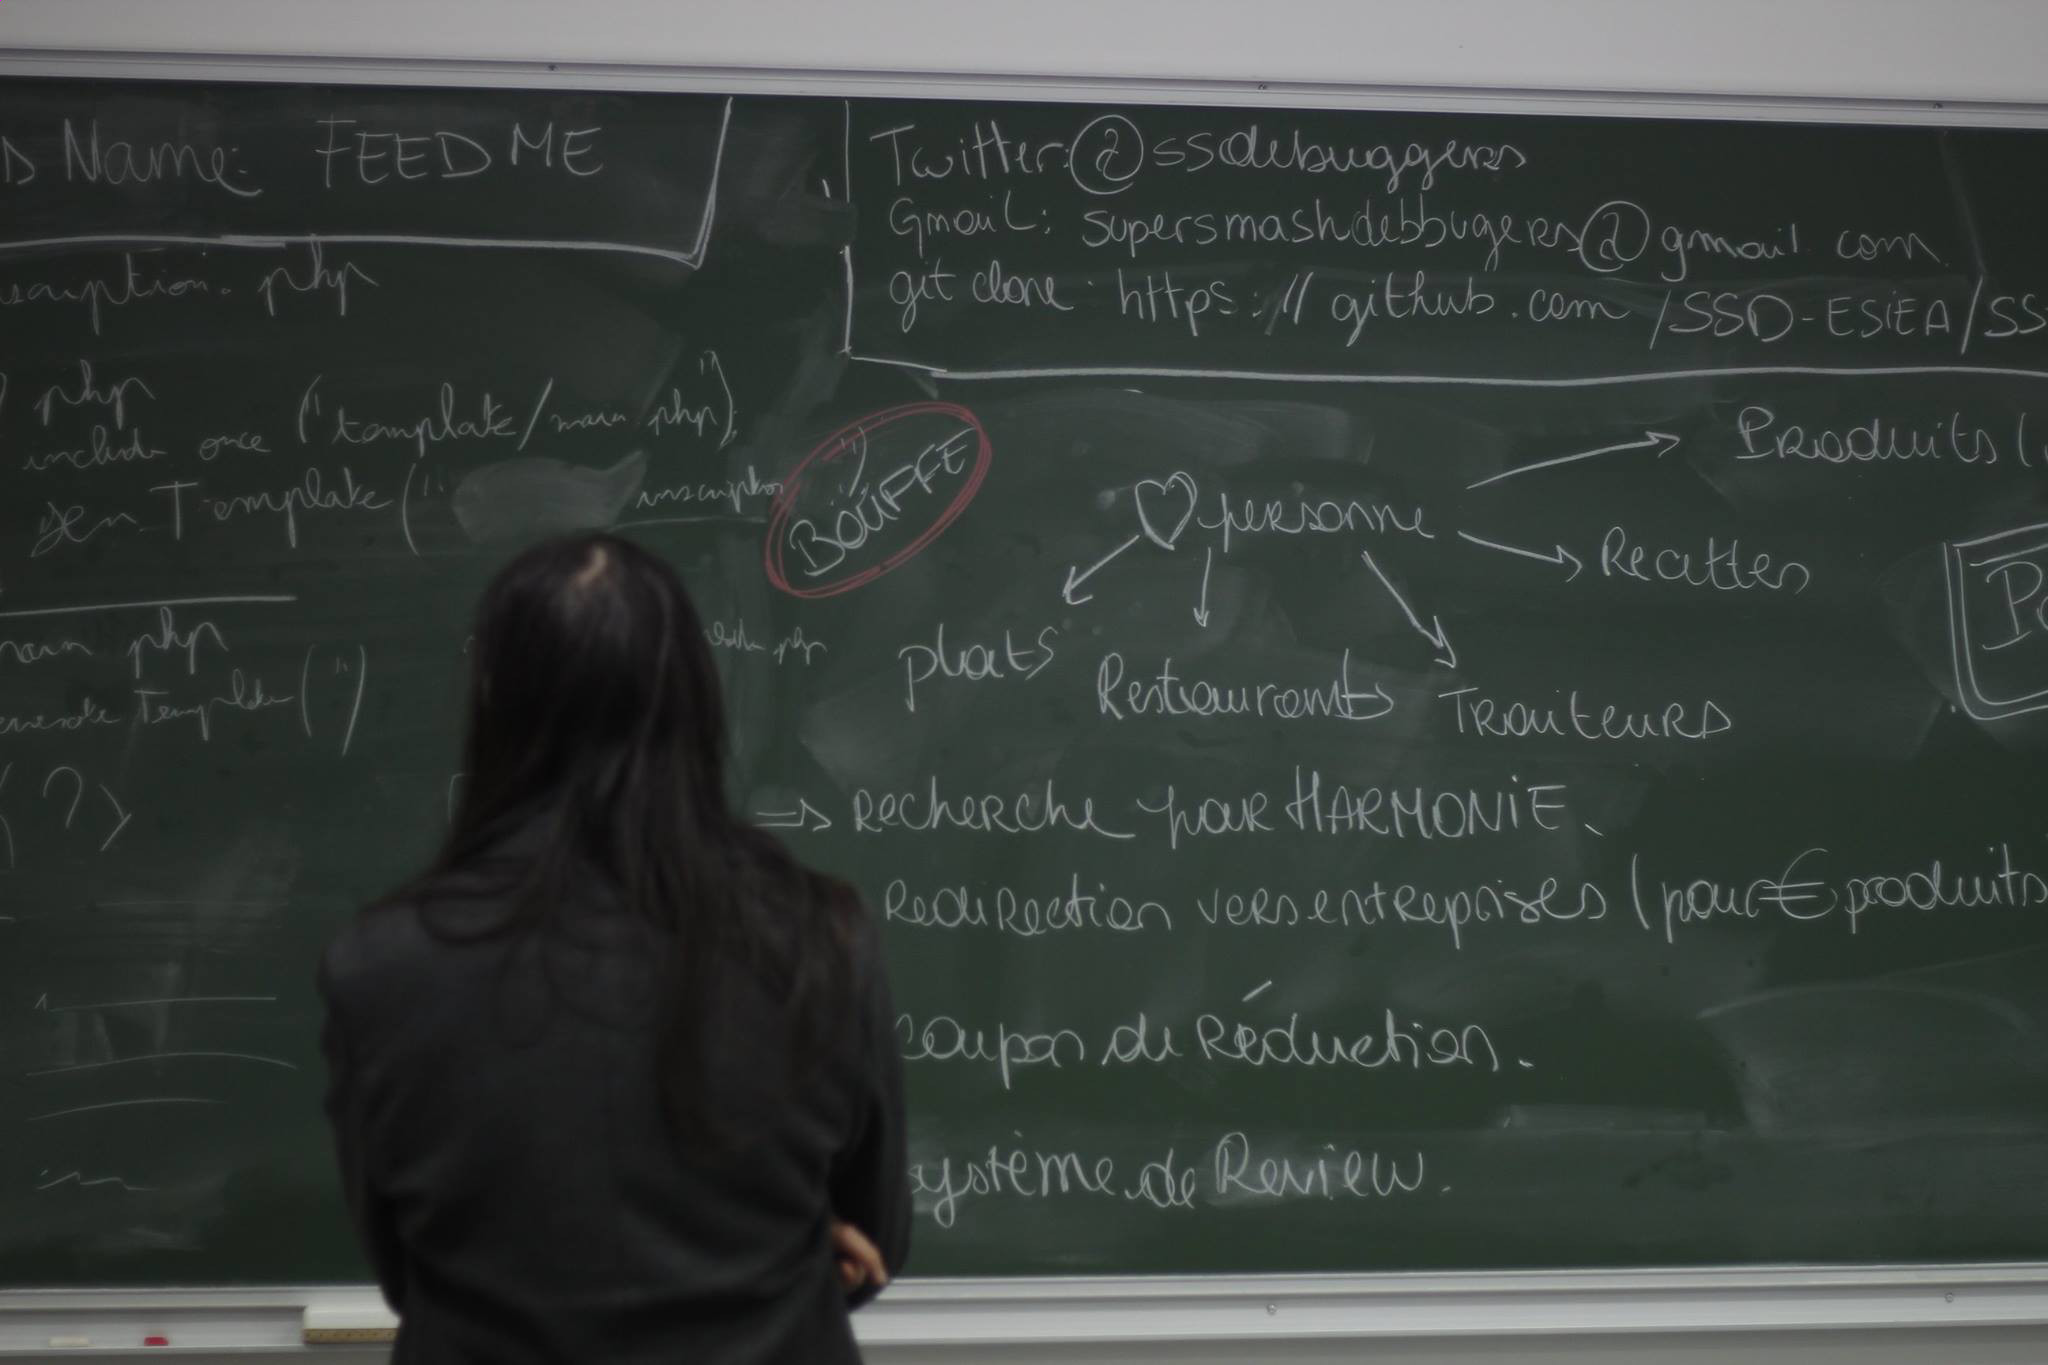 Name: FEED ME
scription.php
php
include once ("template/main.php");
gen Template (" inscription
")
BOUFFE
main php
Template (")
(?)
Twitter: @ssdebuggers
Gmail: supersmashdebbugers@gmail.com
git clone https://github.com/SSD-ESIEA/SS
♡ personne
Produits (
Recettes
plats
Restaurants
Traiteurs
Po
⇒ Recherche pour HARMONIE.
Redirection vers entreprises (pour € produits
coupon de Réduction.
système de Review.